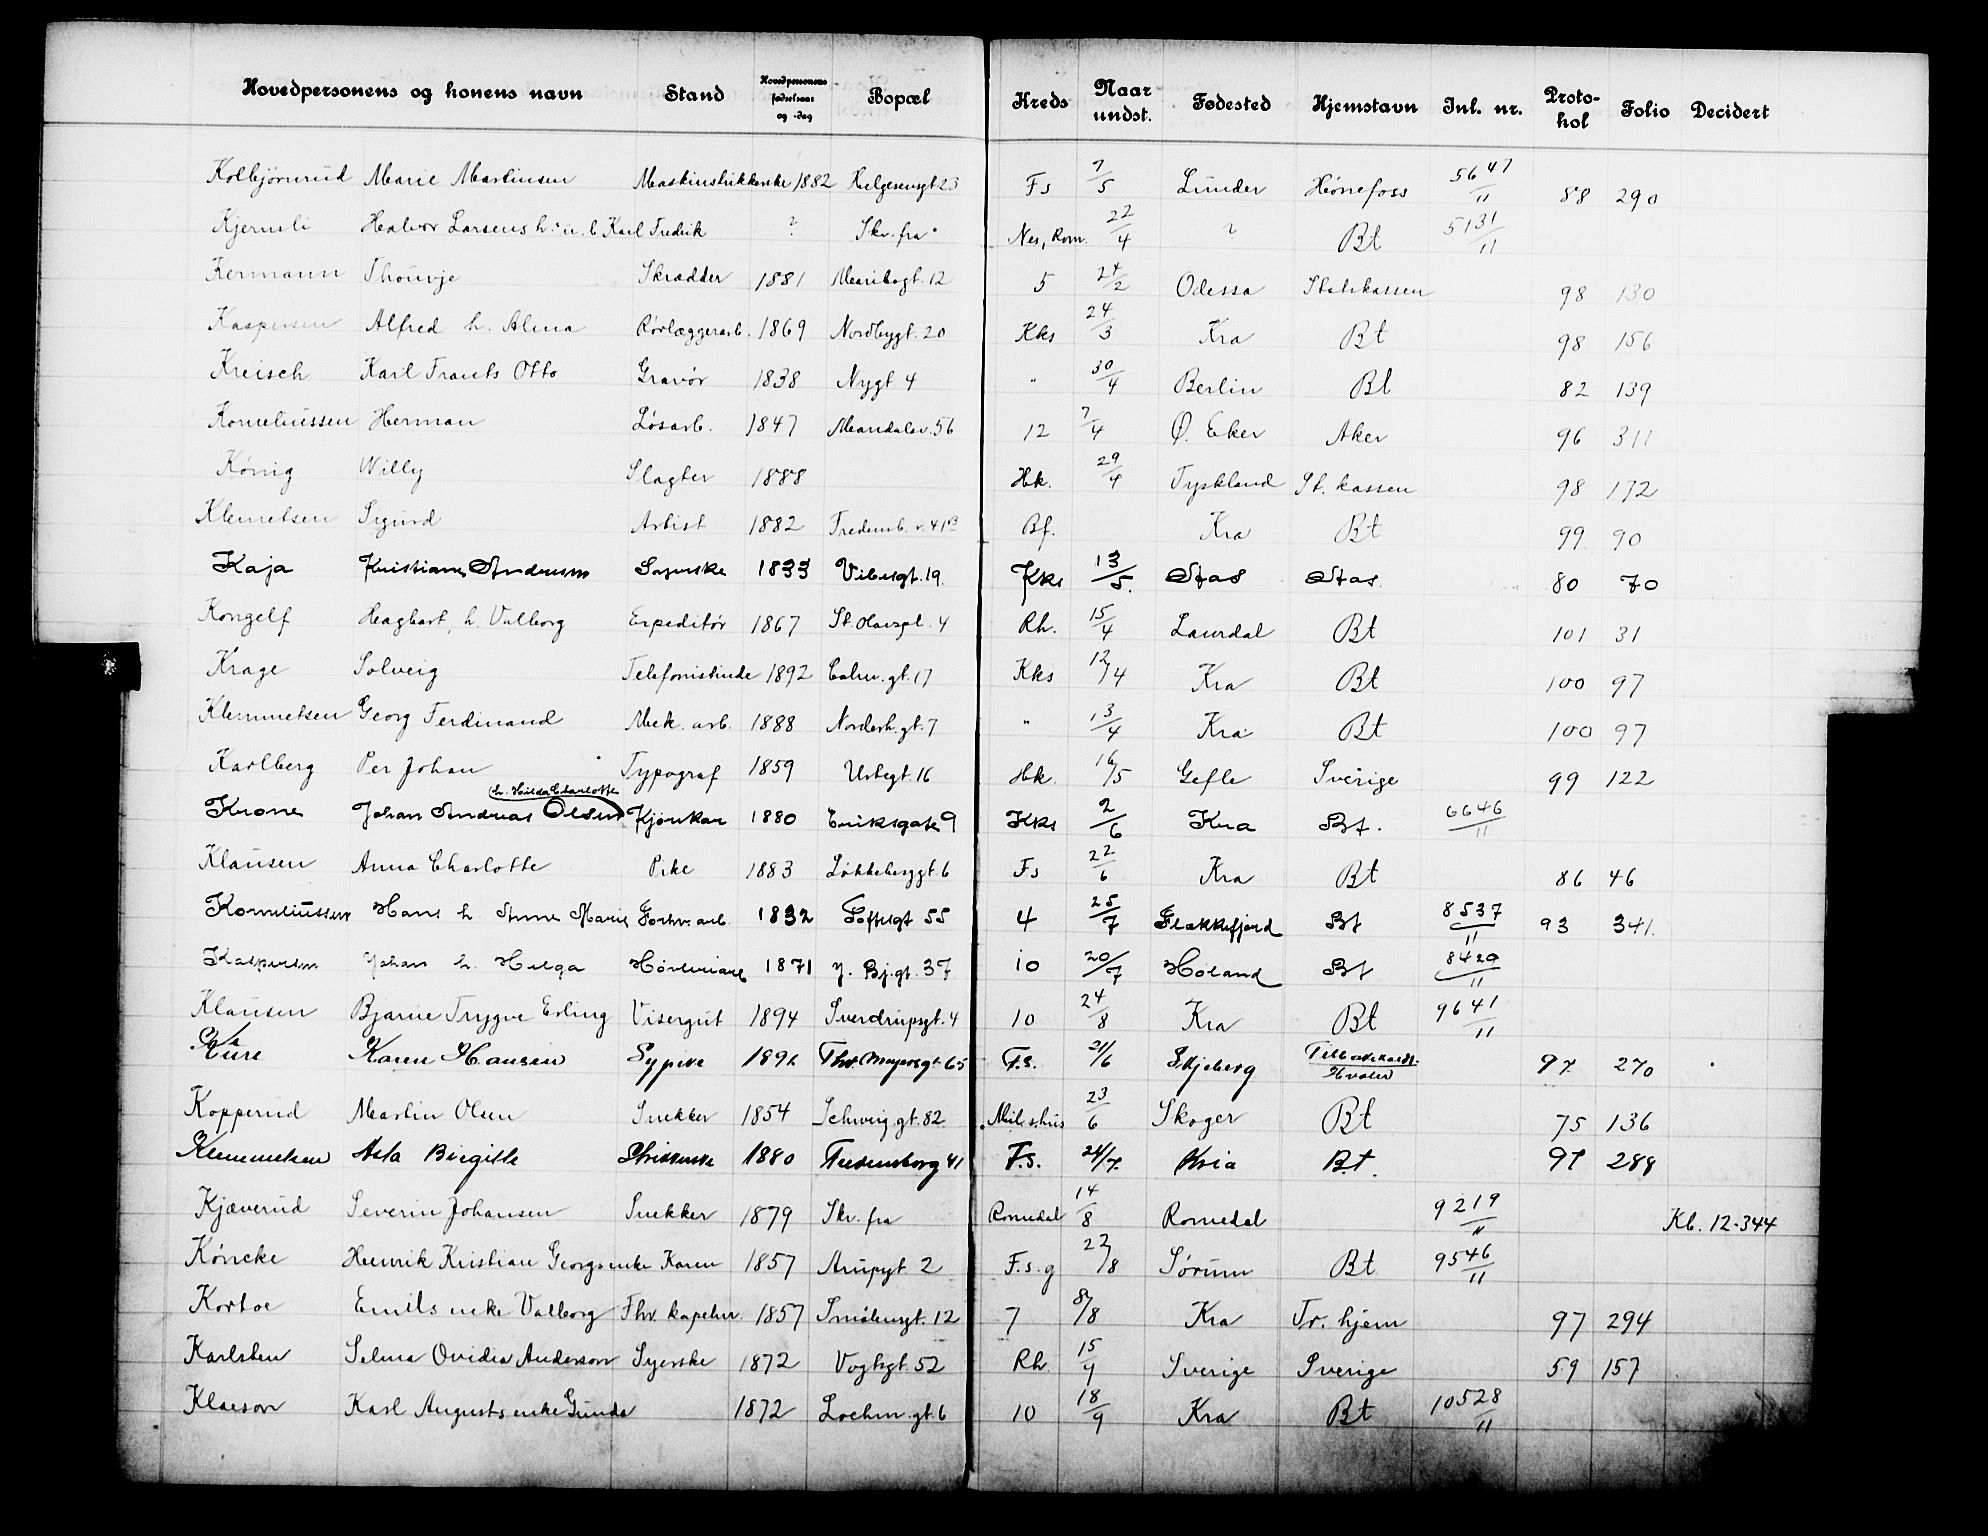 Hovedpersonens og konens navn Stand Hovedpersonens fødselsaar og -dag Bopæl Kreds Naar undst. Fødested Hjemstavn Inl. nr. Protokol Folio Decidert
Kolbjørnrud Marie Martinsen Maskinstrikkerske 1882 Helgesensgt 23 Fs 7/5 Lunder Hønefoss 5647/11 88 290
Kjernsli Halvor Larsens h. u. b Karl Fredrik ? Skr. fra Nes, Rom. 22/4 ? Bt 5131/11
Kermann Skrædder 1881 Maribogt. 12 5 24/2 Odessa Statskassen 98 130
Kaspersen Alfred h. Alma Rørlæggerarb. 1869 Nordbygt. 20 Kks 24/3 Kra Bt 98 156
Kreisch Karl Frants Otto Gravør 1838 Nygt 4 " 30/4 Berlin Bt 82 139
Korneliussen Herman Løsarb. 1847 Maridalsv. 56 12 7/4 Ø. Eker Aker 96 311
König Willy Slagter 1888 Hk. 29/4 Tyskland St. kassen 98 172
Klemetsen Sigurd Artist 1882 Fredensb. v. 41 B Bf. Kra Bt 99 90
Kaja Kristiane Andersen Syerske 1833 Vibesgt. 19 Kks 13/5. Stas Stas. 80 70
Kongelf Hagbart, h. Valborg Expeditør 1867 St. Olavspl. 4 Rh. 15/4 Laurdal Bt 101 31
Krage Solveig Telefonistinde 1892 Calm. gt. 17 Kks 12/4 Kra Bt 100 97
Klemmetsen Georg Ferdinand Mek. arb. 1888 Norderh. gt. 7 " 13/4 Kra Bt 100 97
Karlberg Per Johan Typograf 1859 Urtegt. 16 Hk. 16/5 Gefle Sverige 99 122
h. Hilda Charlotte
Krone Johan Andreas Olsen Kjørekar 1880 Eriksgate 9 Kks 2/6 Kra Bt. 6646/11
Klausen Anna Charlotte Pike 1883 Løkkebergt. 6 Fs 22/6 Kra Bt 86 46
Korneliussen Hans h. Anne Marie Forhv. arb. 1832 Toftesgt 55 4 25/7 Flekkefjord Bt 8537/11 93 341.
Kaspersen Johan h. Helga Høvleriarb 1871 N. Bj. gt. 37 10 20/7 Høland Bt 8420/11
Klausen Bjarne Trygve Erling Visergut 1894 Sverdrupsgt. 4 10 24/8 Kra Bt 9641/11
Kure Karen Hansen Sypike 1892 Thv. Meyersgt 65 F.s. 21/6 Skjeberg Hvaler 97 270
Kopperud Martin Olsen Snekker 1854 Schweig. gt. 82 Mil. s.hus 23/6 Skoger Bt 75 136
Klemmetsen Asta Birgitte Strikkerske 1880 Fredensborg 41 F.s. 24/7. Kria B.t. 97 288
Kjæverud Severin Johansen Snekker 1879 Skr. fra Romedal 14/8 Romedal 9219/11 Kb. 12-344
Köncke Henrik Kristian Georgs enke Karen 1857 Arupsgt. 2 F.s. g 22/8 Sørum Bt 9546/11
Kortoe Emils enke Valborg Fhv. kapelm. 1857 Smålensgt. 12 7 8/8 Kra Tr. hjem 97 294
Karlsten Selma Ovidia Anderson Syerske 1872 Vogtsgt. 52 Rh. 15/9 Sverige Sverige 59 157
Klaeson Karl Augusts enke Gunda 1872 Lochm. gt. 6 10 18/9 Kra Bt 10528/11